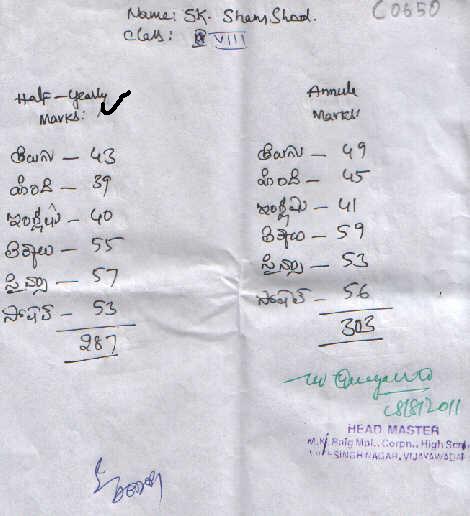 C0650
Name: SK. Sham Shad.
Class: VIII
Half-Yearly
Marks:
తెలుగు - 43
హింది - 39
ఇంగ్లీషు - 40
లెక్కలు - 55
సైన్సు - 57
సోషల్ - 53
287
Annule
Marks:
తెలుగు - 49
హింది - 45
ఇంగ్లీషు - 41
లెక్కలు - 59
సైన్సు - 53
సోషల్ - 56
303
HEAD MASTER
M.K. Baig Mpl. Corpn. High School
SINGH NAGAR, VIJAYAWADA